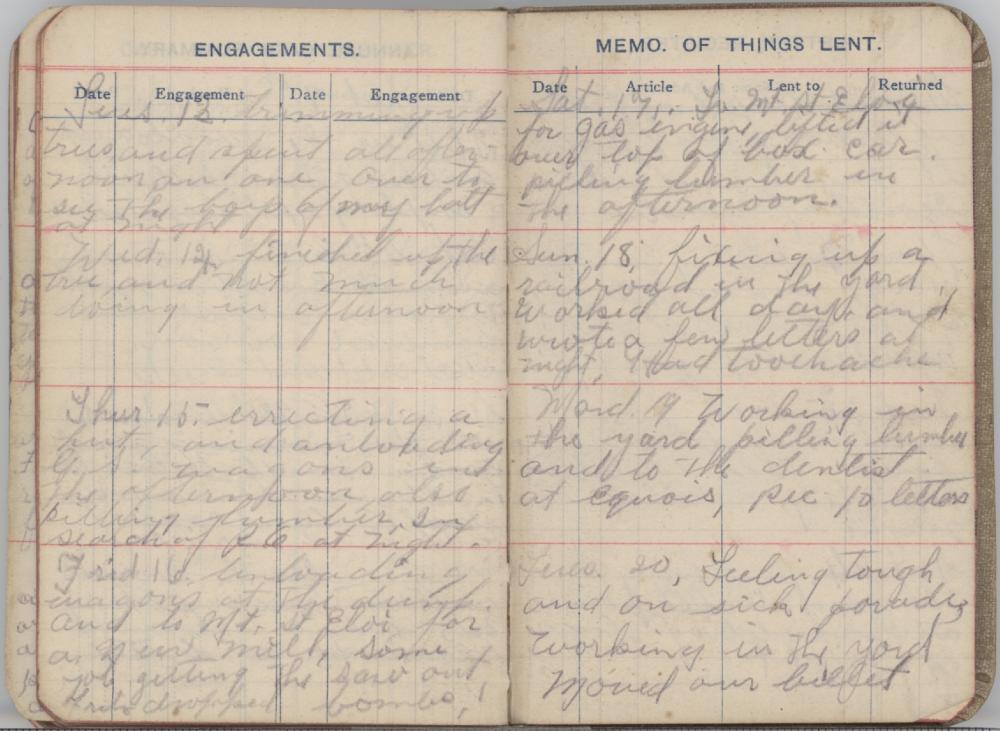 ENGAGEMENTS.
Date Engagement Date Engagement
Tues. 13. trimming up
trees and spent all after-
noon on one over to
see the boys of my batt
at night
Wed. 14, finished up the
tree and not much
doing in afternoon
Thur 15. errecting a
hut, and unloading
G.S. wagons in
the afternoon also
pilling lumber, in
search of at night.
Frid 16. Unloading
wagons at the dump.
and to Mt. St Eloi for
a new mill, some
job getting the saw out,
Fritz dropped bombs,!
MEMO. OF THINGS LENT.
Date Article Lent to Returned
Sat. 17,. To Mt. St. Eloy
for gas engine, lifted it
over top of box car.
pilling lumber in
the afternoon.
Sun. 18, fixing up a
railroad in the yard,
worked all day, and
wrote a few letters at
night, Had toothache
Mond. 19 Working in
the yard pilling lumber
and to the dentist
at, rec 10 letters
Tues. 20, Feeling tough
and on sick parade,
Working in the yard
Moved our billet